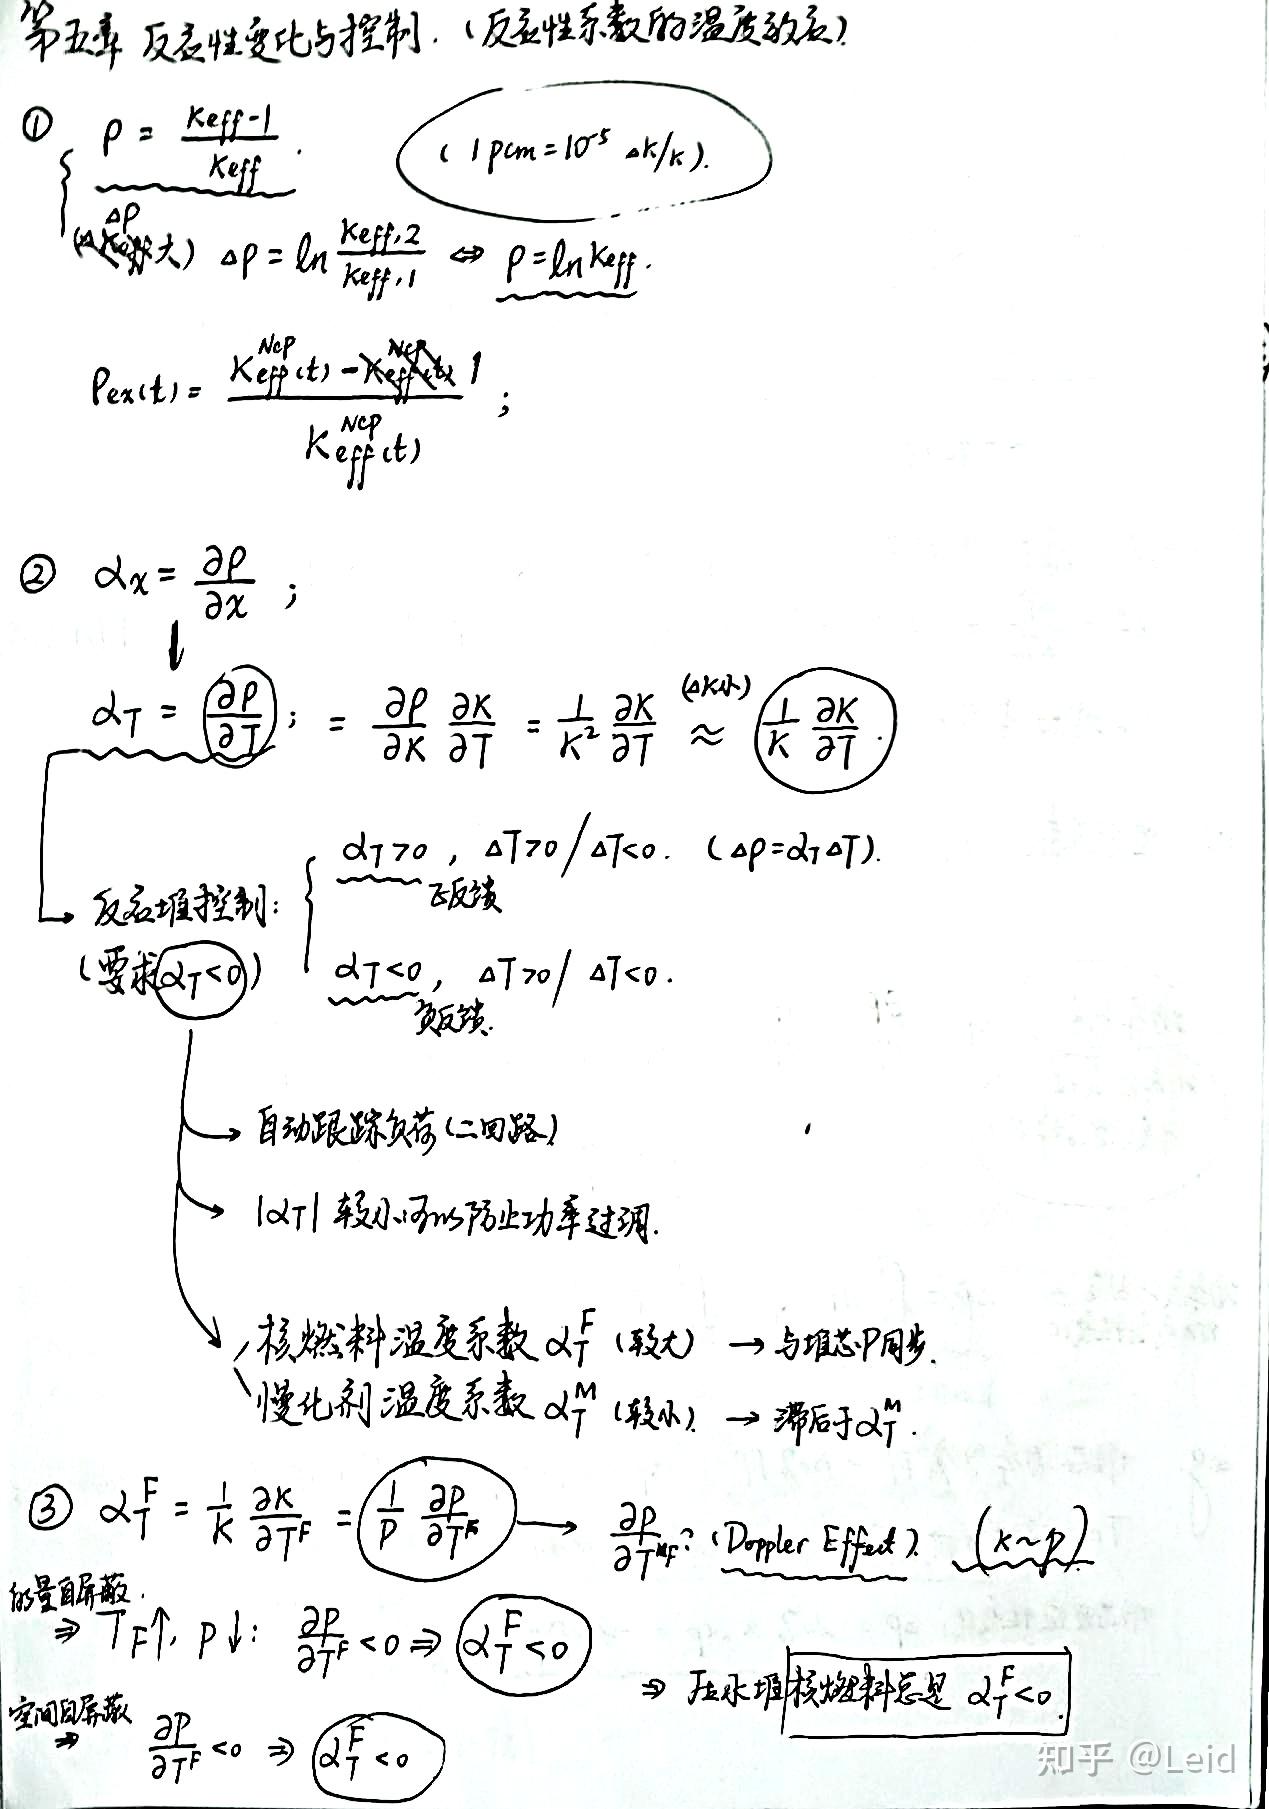 第五章 反应性变化与控制.（反应性系数的温度效应）
① ρ = (Keff-1)/Keff . (1pcm=10^-5 ΔK/K).
Δρ
(大) Δρ = ln Keff,2/Keff,1 ⇔ ρ=lnKeff.
ρex(t) = (K^NCP eff(t) - 1)/K^NCP eff(t) ;
② αx = ∂ρ/∂x ;
↓
αT = ∂ρ/∂T ; = ∂ρ/∂K ∂K/∂T = 1/K² ∂K/∂T ≈ (ΔK小) 1/K ∂K/∂T .
αT>0, ΔT>0/ΔT<0. (Δρ=αTΔT).
正反馈
→ 反应堆控制:
(要求αT<0)
αT<0, ΔT>0/ΔT<0.
负反馈.
→ 自动跟踪负荷(二回路)
→ |αT| 较小可以防止功率过调.
→ 核燃料温度系数 αT^F (较大) → 与堆芯P同步.
慢化剂温度系数 αT^M (较小) → 滞后于αT^M.
③ αT^F = 1/K ∂K/∂T^F = 1/P ∂P/∂T^F → ∂P/∂T^F ? (Doppler Effect). (K~P)
能量自屏蔽.
⇒ TF↑, P↓: ∂P/∂T^F <0 ⇒ αT^F <0
⇒ 压水堆核燃料总是 αT^F<0.
空间自屏蔽
⇒ ∂P/∂T^F <0 ⇒ αT^F <0
知乎 @Leid